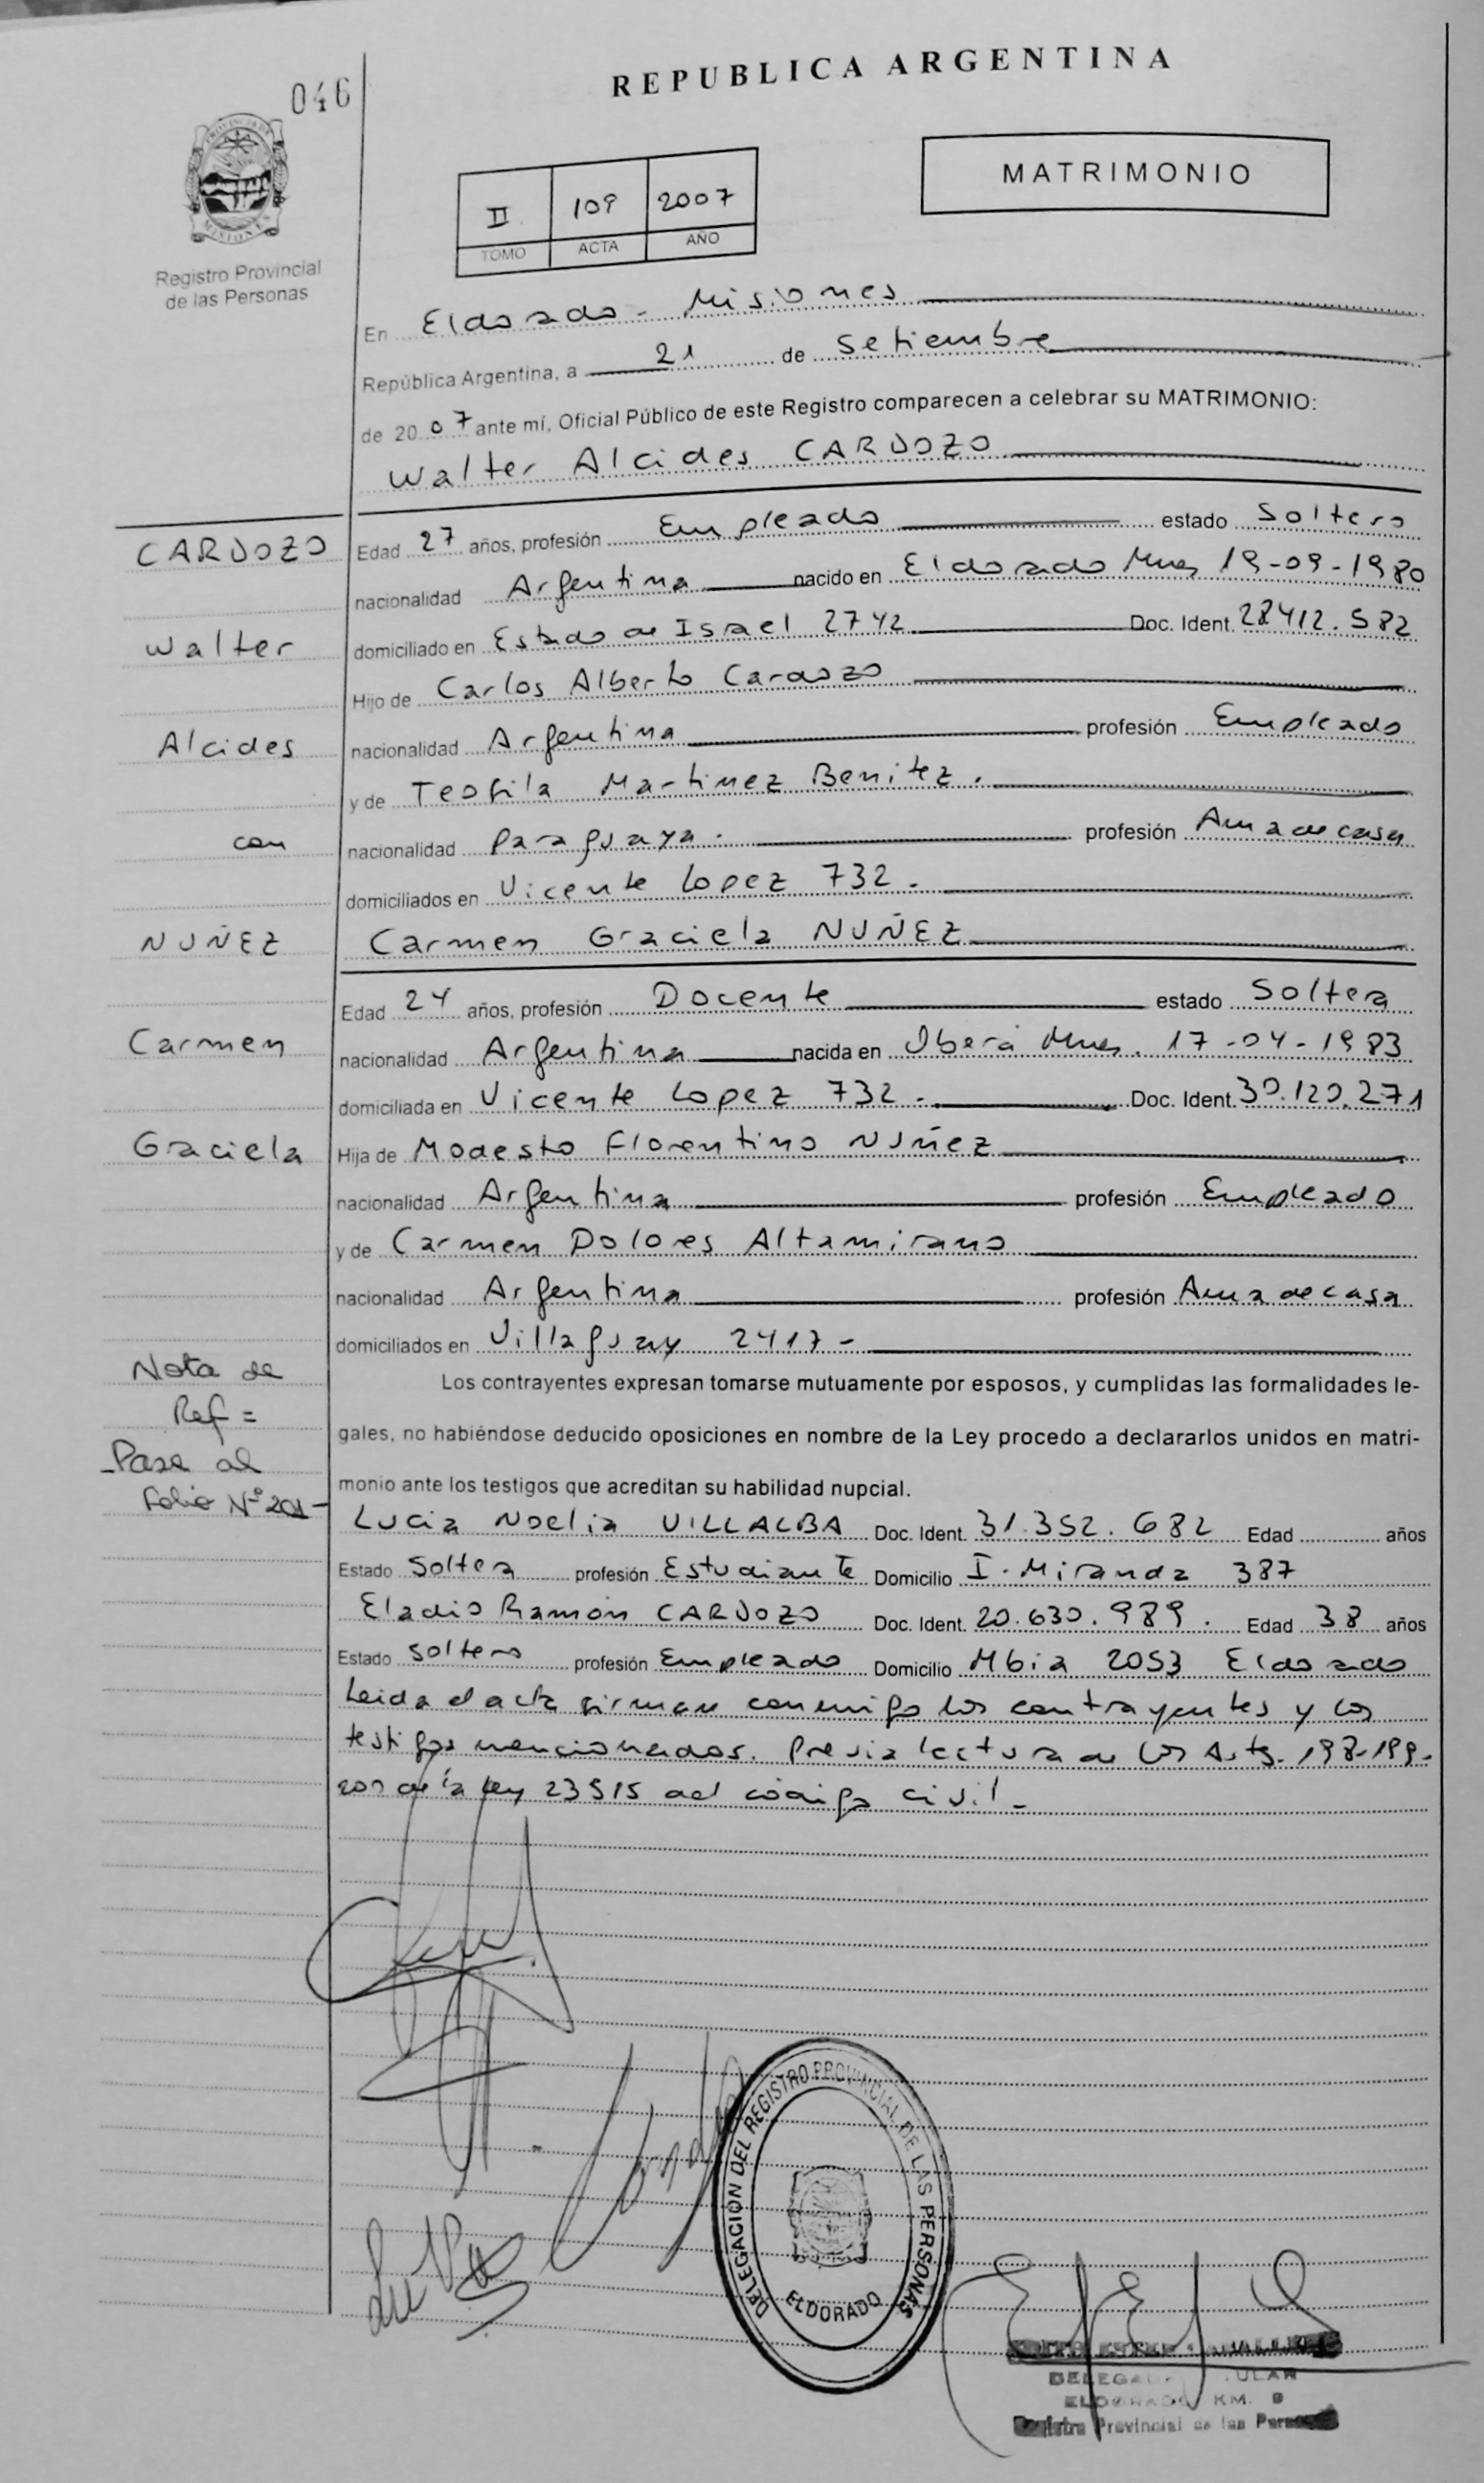 REPUBLICA ARGENTINA
046
MATRIMONIO
II 109 2007
TOMO ACTA AÑO
PROVINCIA DE
MISIONES
Registro Provincial
de las Personas
En Eldorado - Misiones
República Argentina, a 21 de Setiembre
de 2007 ante mí, Oficial Público de este Registro comparecen a celebrar su MATRIMONIO:
Walter Alcides CARDOZO
CARDOZO
Walter
Alcides
con
NUÑEZ
Carmen
Graciela
Edad 27 años, profesión Empleado estado Soltero
nacionalidad Argentina nacido en Eldorado Mnes 19-09-1980
domiciliado en Estado de Israel 2742 Doc. Ident. 28412.582
Hijo de Carlos Alberto Cardozo
nacionalidad Argentina profesión Empleado
y de Teofila Martinez Benitez.
nacionalidad Paraguaya. profesión Ama de casa
domiciliados en Vicente Lopez 732.
Carmen Graciela NUÑEZ
Edad 24 años, profesión Docente estado Soltera
nacionalidad Argentina nacida en Oberá Mnes. 17-04-1983
domiciliada en Vicente Lopez 732.- Doc. Ident. 30.120.271
Hija de Modesto Florentino Nuñez
nacionalidad Argentina profesión Empleado
y de Carmen Dolores Altamirano
nacionalidad Argentina profesión Ama de casa
domiciliados en Villaguay 2417-
Nota de
Ref =
Pasa al
Folio Nº 201-
Los contrayentes expresan tomarse mutuamente por esposos, y cumplidas las formalidades le-
gales, no habiéndose deducido oposiciones en nombre de la Ley procedo a declararlos unidos en matri-
monio ante los testigos que acreditan su habilidad nupcial.
Lucia Noelia VILLALBA Doc. Ident. 31.352.682 Edad años
Estado Soltera profesión Estudiante Domicilio I. Miranda 387
Eladio Ramón CARDOZO Doc. Ident. 20.630.989. Edad 38 años
Estado Soltero profesión Empleado Domicilio Mbia 2053 Eldorado
Leida el acta firman conmigo los contrayentes y los
testigos mencionados. Previa lectura de los Arts. 198-199-
200 de la ley 23515 del código civil-
DELEGACION DEL REGISTRO PROVINCIAL DE LAS PERSONAS
ELDORADO
ELDORADO KM. 9
Registro Provincial de las Personas